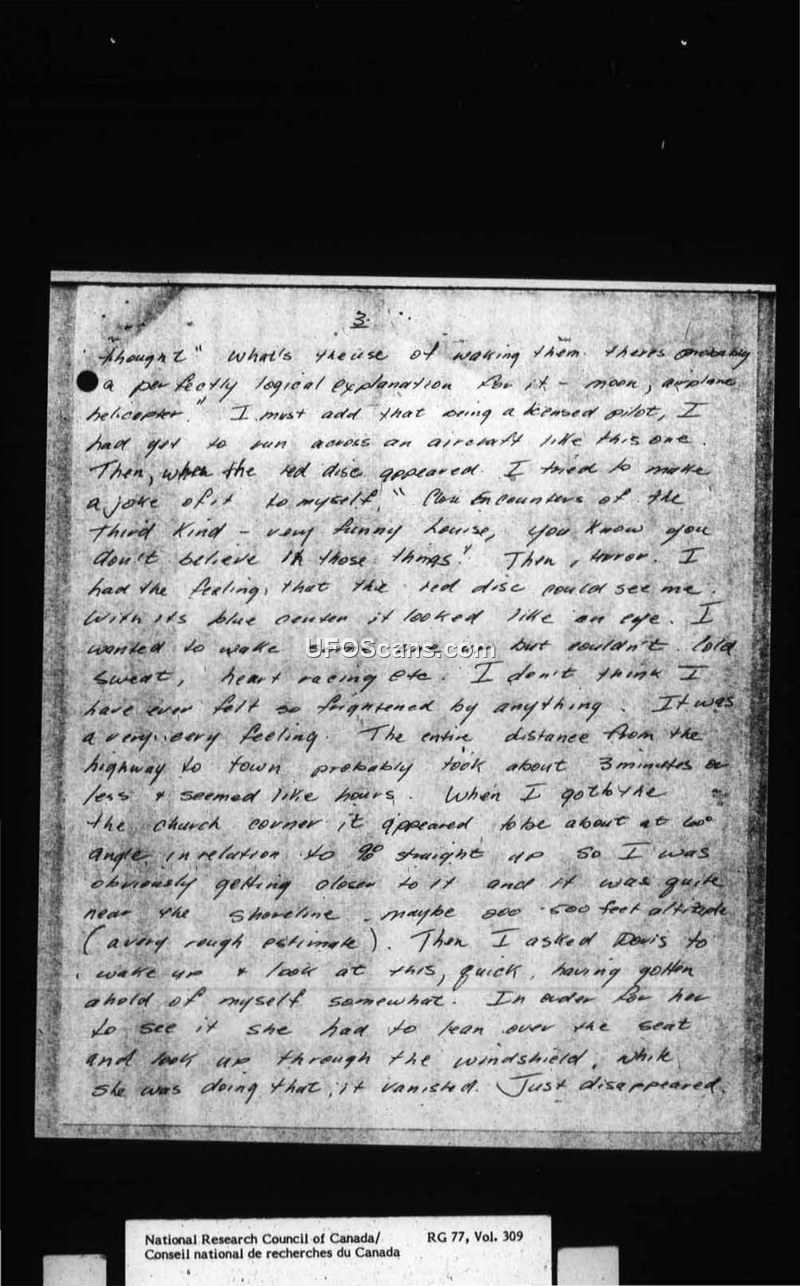 3.
thought " what's the use of waking them. theres probably
a perfectly logical explanation for it - moon, airplane
helicopter." I must add that being a licensed pilot, I
had yet to run across an aircraft like this one.
Then, when the red disc appeared. I tried to make
a joke of it to myself, " Close Encounters of the
Third Kind - very funny Louise, you know you
don't believe in those things." Then, horror. I
had the feeling, that the red disc could see me.
With its blue center it looked like an eye. I
wanted to wake someone up but couldn't. Cold
sweat, heart racing etc. I don't think I
have ever felt so frightened by anything. It was
a very eery feeling. The entire distance from the
highway to town probably took about 3 minutes or
less & seemed like hours. When I got to the
the church corner it appeared to be about at 60°
angle in relation to 90° straight up so I was
obviously getting closer to it and it was quite
near the shoreline. maybe 500 feet altitude
(a very rough estimate). Then I asked Doris to
wake up & look at this, quick, having gotten
ahold of myself somewhat. In order for her
to see it she had to lean over the seat
and look up through the windshield, while
she was doing that, it vanished. Just disappeared.
UFOScans.com
National Research Council of Canada/ RG 77, Vol. 309
Conseil national de recherches du Canada